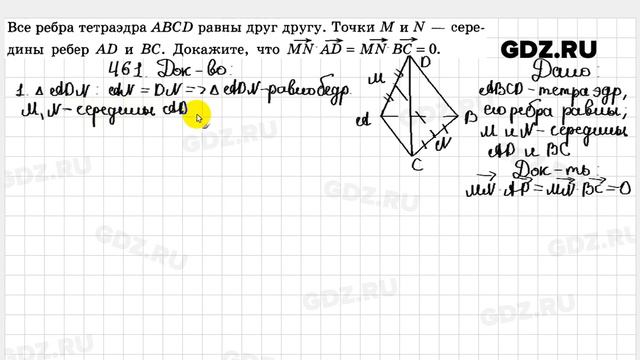 Все ребра тетраэдра ABCD равны друг другу. Точки M и N — сере-
дины ребер AD и BC. Докажите, что MN · AD = MN · BC = 0.
GDZ.RU
461. Док-во:
1. △ ADN : AN = DN => △ ADN-равнобедр.
M, N-середины AD
D
M
A
B
N
C
Дано:
ABCD-тетраэдр,
его ребра равны;
M и N-середины
AD и BC
Док-ть:
MN · AD = MN · BC = 0
GDZ.RU
GDZ.RU
GDZ.RU
GDZ.RU
GDZ.RU